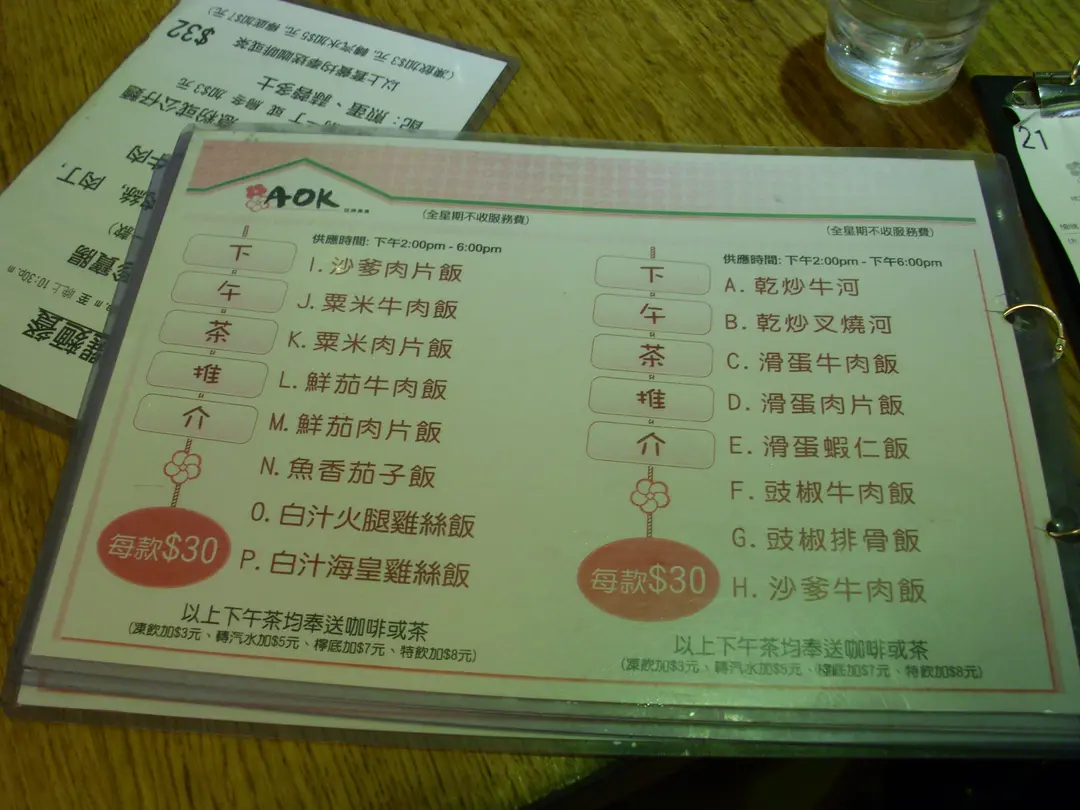 $32
(凍飲加$3元, 轉汽水加$5元, 檸底加$7元)
以上套餐均奉送咖啡或茶
配: 煎蛋、蒜蓉多士
加$3元
21
AOK
(全星期不收服務費)
供應時間: 下午2:00pm - 6:00pm
下午茶推介
I. 沙爹肉片飯
J. 粟米牛肉飯
K. 粟米肉片飯
L. 鮮茄牛肉飯
M. 鮮茄肉片飯
N. 魚香茄子飯
O. 白汁火腿雞絲飯
P. 白汁海皇雞絲飯
每款$30
以上下午茶均奉送咖啡或茶
(凍飲加$3元、轉汽水加$5元、檸底加$7元、特飲加$8元)
(全星期不收服務費)
供應時間: 下午2:00pm - 下午6:00pm
下午茶推介
A. 乾炒牛河
B. 乾炒叉燒河
C. 滑蛋牛肉飯
D. 滑蛋肉片飯
E. 滑蛋蝦仁飯
F. 豉椒牛肉飯
G. 豉椒排骨飯
H. 沙爹牛肉飯
每款$30
以上下午茶均奉送咖啡或茶
(凍飲加$3元、轉汽水加$5元、檸底加$7元、特飲加$8元)